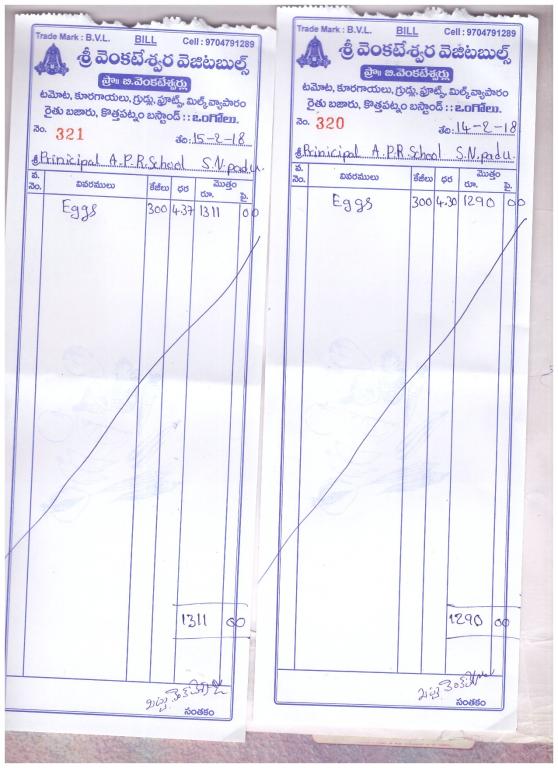 Trade Mark : B.V.L. BILL Cell : 9704791289
శ్రీ వెంకటేశ్వర వెజిటబుల్స్
ప్రొ॥ బి.వెంకటేశ్వర్లు
టమోట, కూరగాయలు, గ్రుడ్లు, ఫ్రూట్స్, మిల్క్ వ్యాపారం
రైతు బజారు, కొత్తపట్నం బస్టాండ్ :: ఒంగోలు.
నెం. 321 తేది: 15-2-18
శ్రీ Prinicipal A.P.R.School S.N.padu.
వ. నెం. వివరములు కేజీలు ధర మొత్తం రూ. పై.
Eggs 300 4.37 1311 00
1311 00
సంతకం
Trade Mark : B.V.L. BILL Cell : 9704791289
శ్రీ వెంకటేశ్వర వెజిటబుల్స్
ప్రొ॥ బి.వెంకటేశ్వర్లు
టమోట, కూరగాయలు, గ్రుడ్లు, ఫ్రూట్స్, మిల్క్ వ్యాపారం
రైతు బజారు, కొత్తపట్నం బస్టాండ్ :: ఒంగోలు.
నెం. 320 తేది: 14-2-18
శ్రీ Prinicipal A.P.R.School S.N.padu.
వ. నెం. వివరములు కేజీలు ధర మొత్తం రూ. పై.
Eggs 300 4.30 1290 00
1290 00
సంతకం